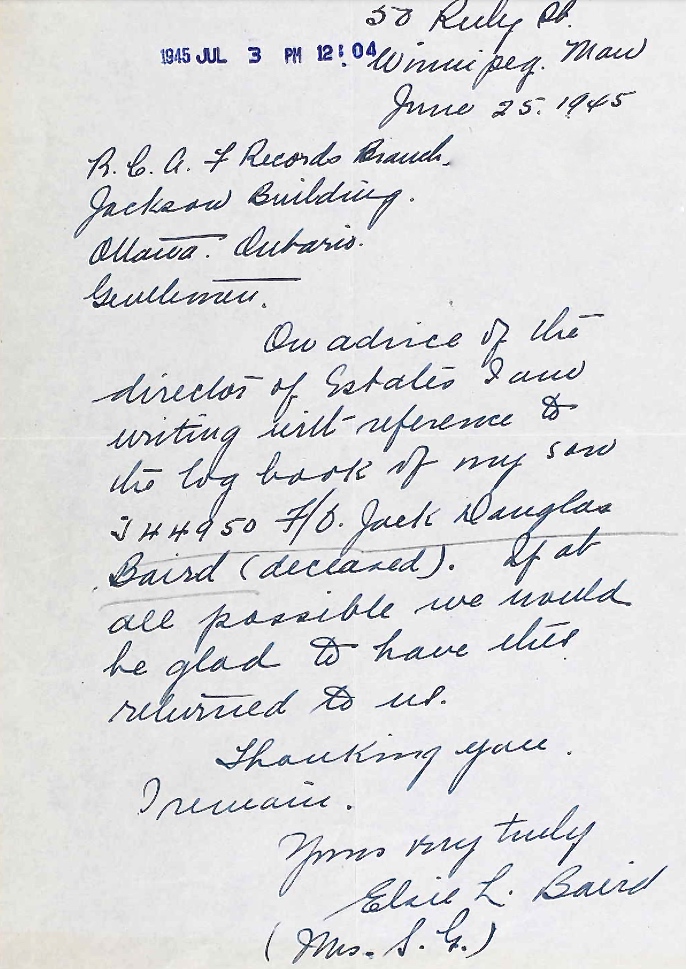 50 Ruby St.
1945 JUL 3 PM 12:04
Winnipeg. Man
June 25. 1945
R. C. A. F Records Branch.
Jackson Building.
Ottawa. Ontario.
Gentlemen.
On advice of the
director of Estates I am
writing with reference to
the log book of my son
J44950 F/O. Jack Douglas
Baird (deceased). If at
all possible we would
be glad to have this
returned to us.
Thanking you.
I remain.
Yours very truly
Elsie L. Baird
(Mrs. S. G.)